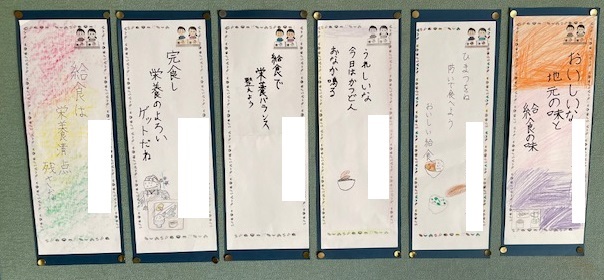 おいしいな
地元の味と
給食の味
ひまつをね
防いで食べよう
おいしい給食
うれしいな
今日はかつどん
おなか鳴る
給食で
栄養バランス
整えよう
完食し
栄養のよろい
ゲットだね
給食は
栄養満点
残さ